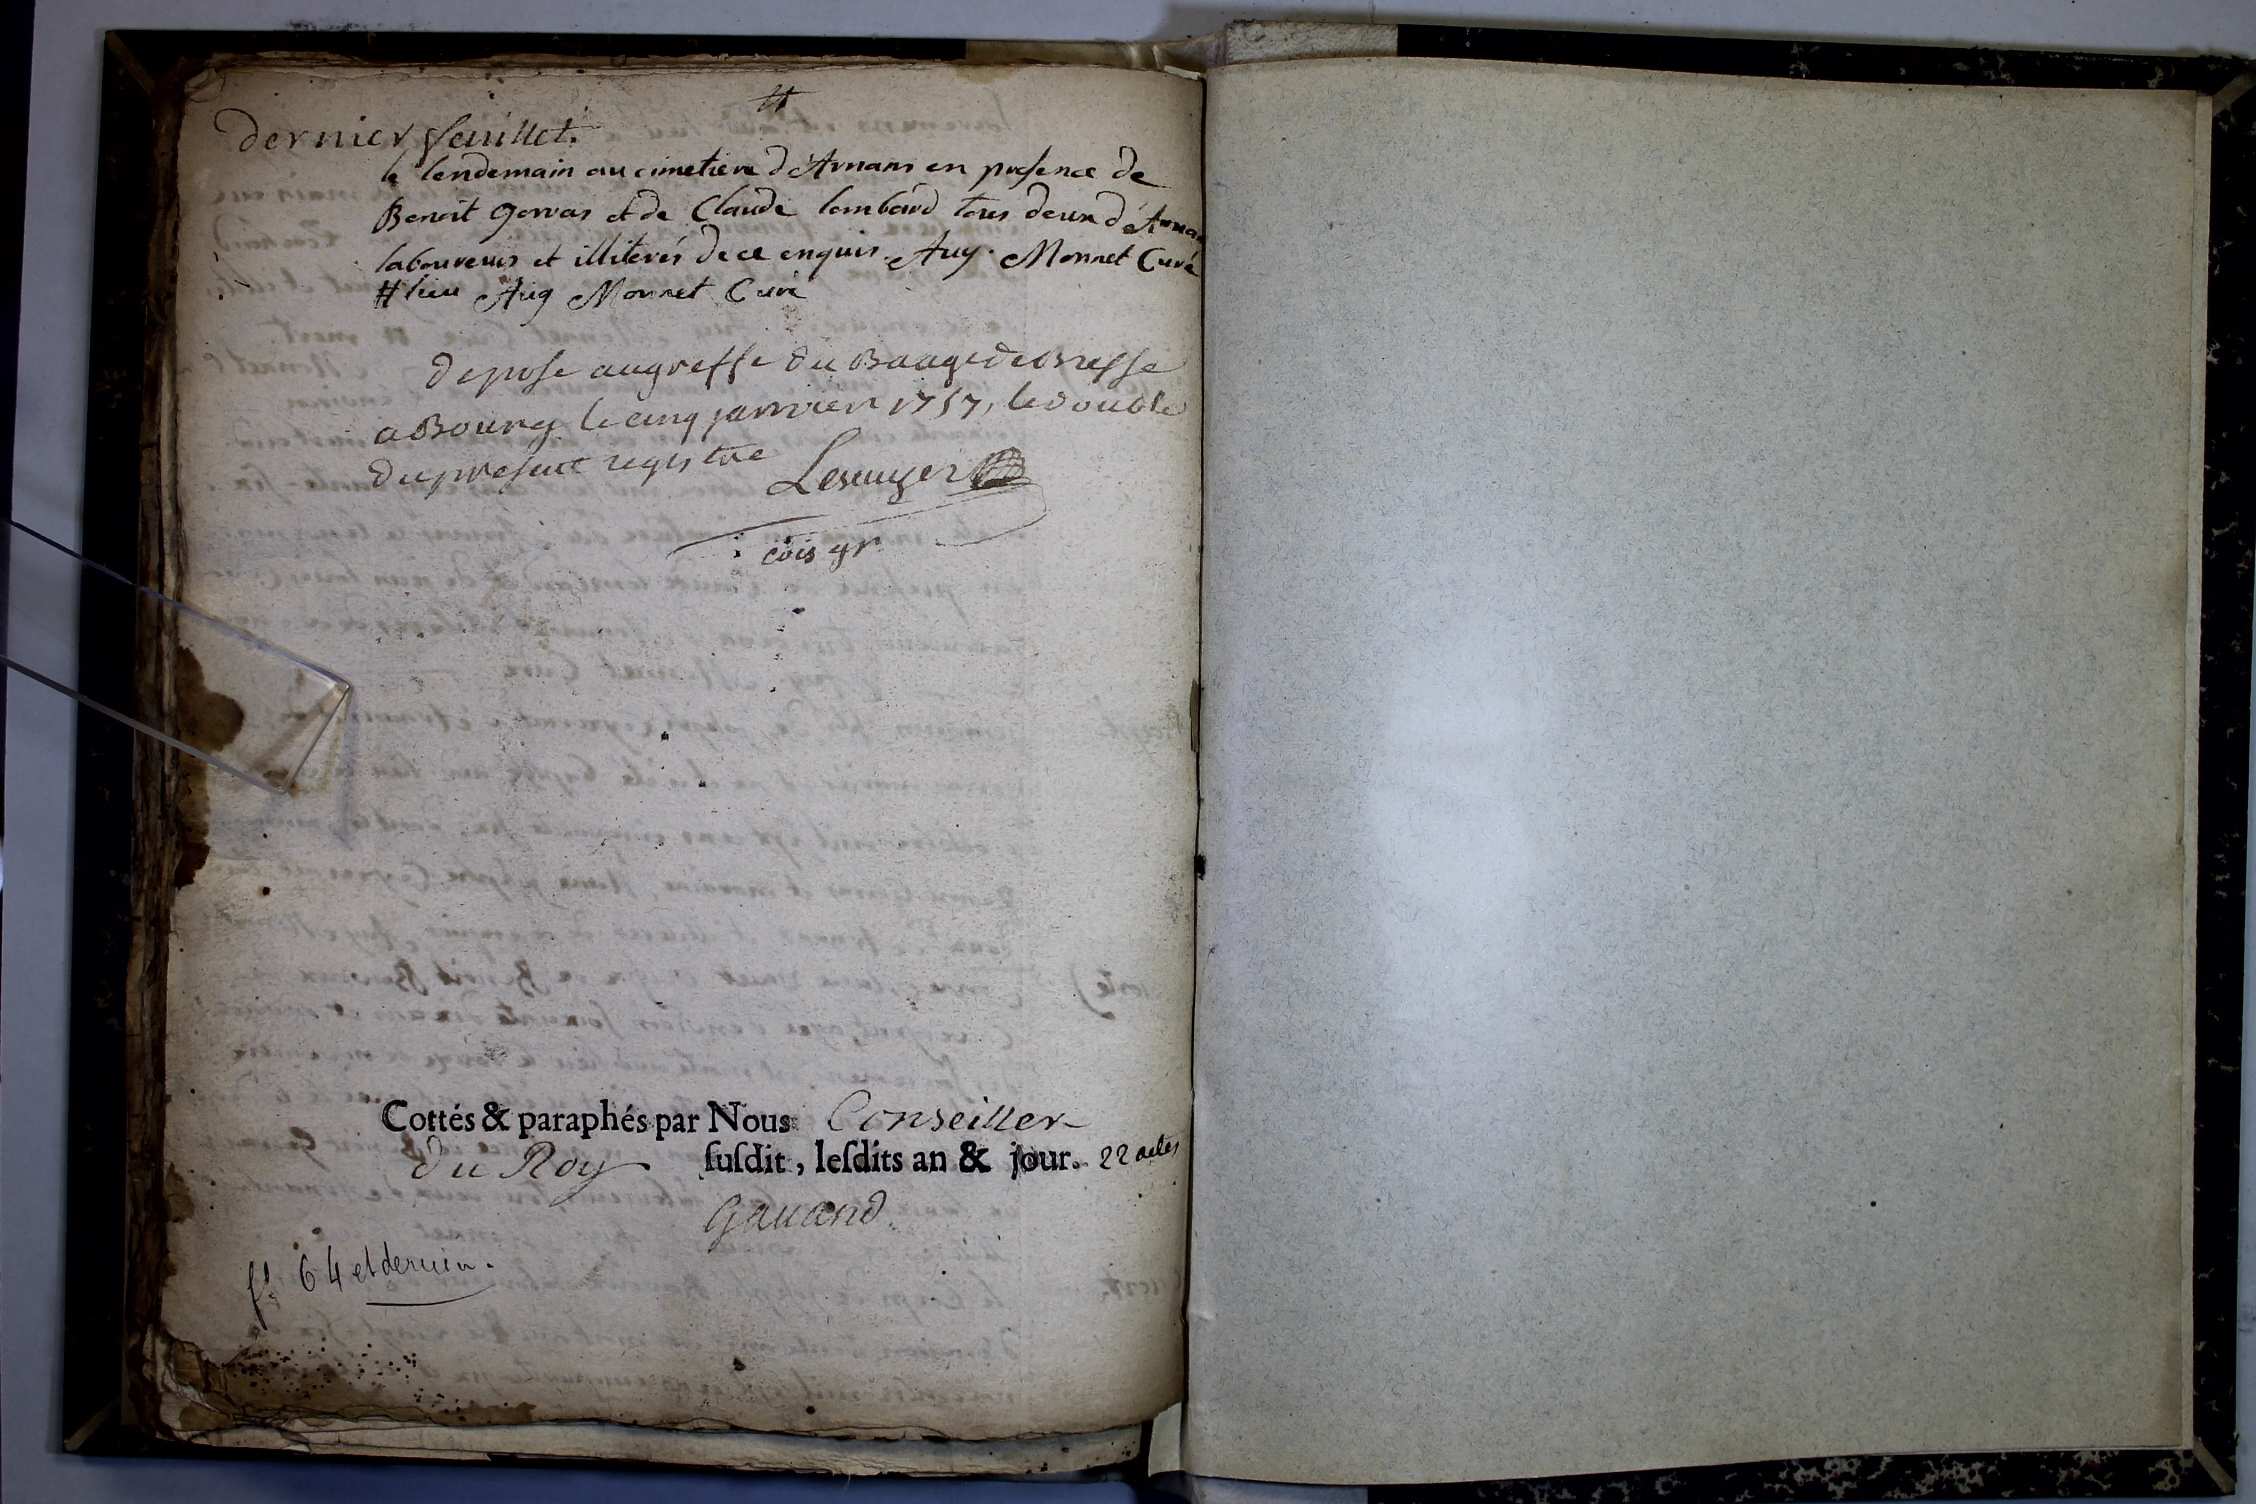 #
dernier feuillet.
le lendemain au cimetiere d'Arnans en presence de
Benoit Gervas et de Claude lombard tous deux d'Arnans
laboureurs et illiterés de ce enquis. Aug. Monnet Curé
# lieu Aug Monnet Curé
depose au greffe du Baage de Bresse
a Bourg le cinq janvier 1757, le double
du present registre
cõis gr
Cottés & paraphés par Nous Conseiller
du Roy susdit, lesdits an & jour. 22 actes
Gauand
ff 64 et dernier.